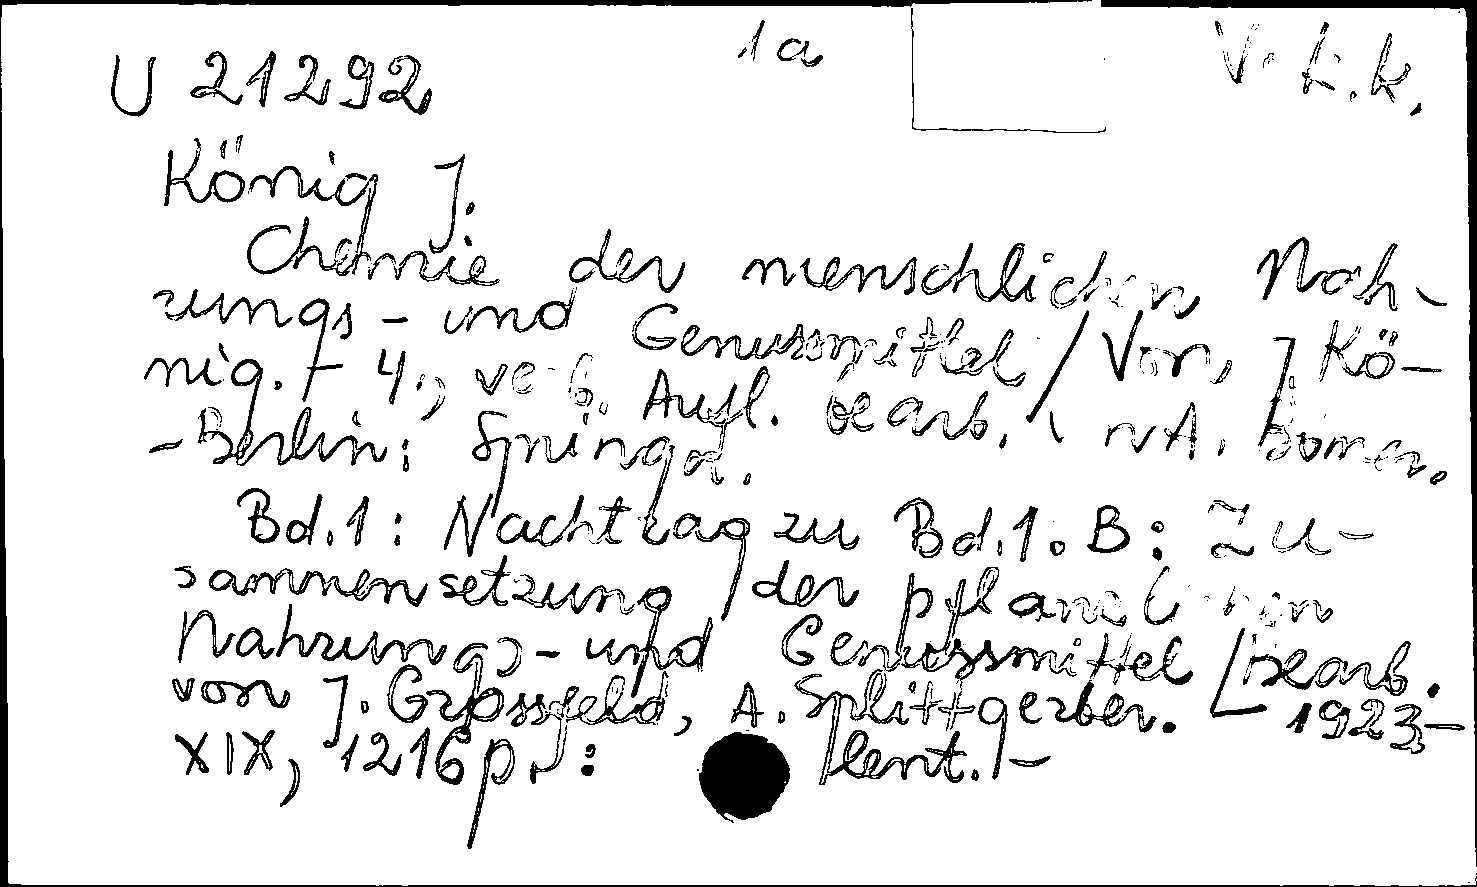 1a
V. k.k.
U 21292
König J.
Chemie der menschlichen Nah-
rungs- und Genussmittel / Von J. Kö-
nig. - 4., verb. Aufl. bearb. v. A. Bömer.
- Berlin: Springer.
Bd.1: Nachtrag zu Bd.1. B: Zu-
sammensetzung der pflanzlichen
Nahrungs- und Genussmittel / bearb.
von J. Grossfeld, A. Splittgerber. - 1923. -
XIX, 1216 p.: